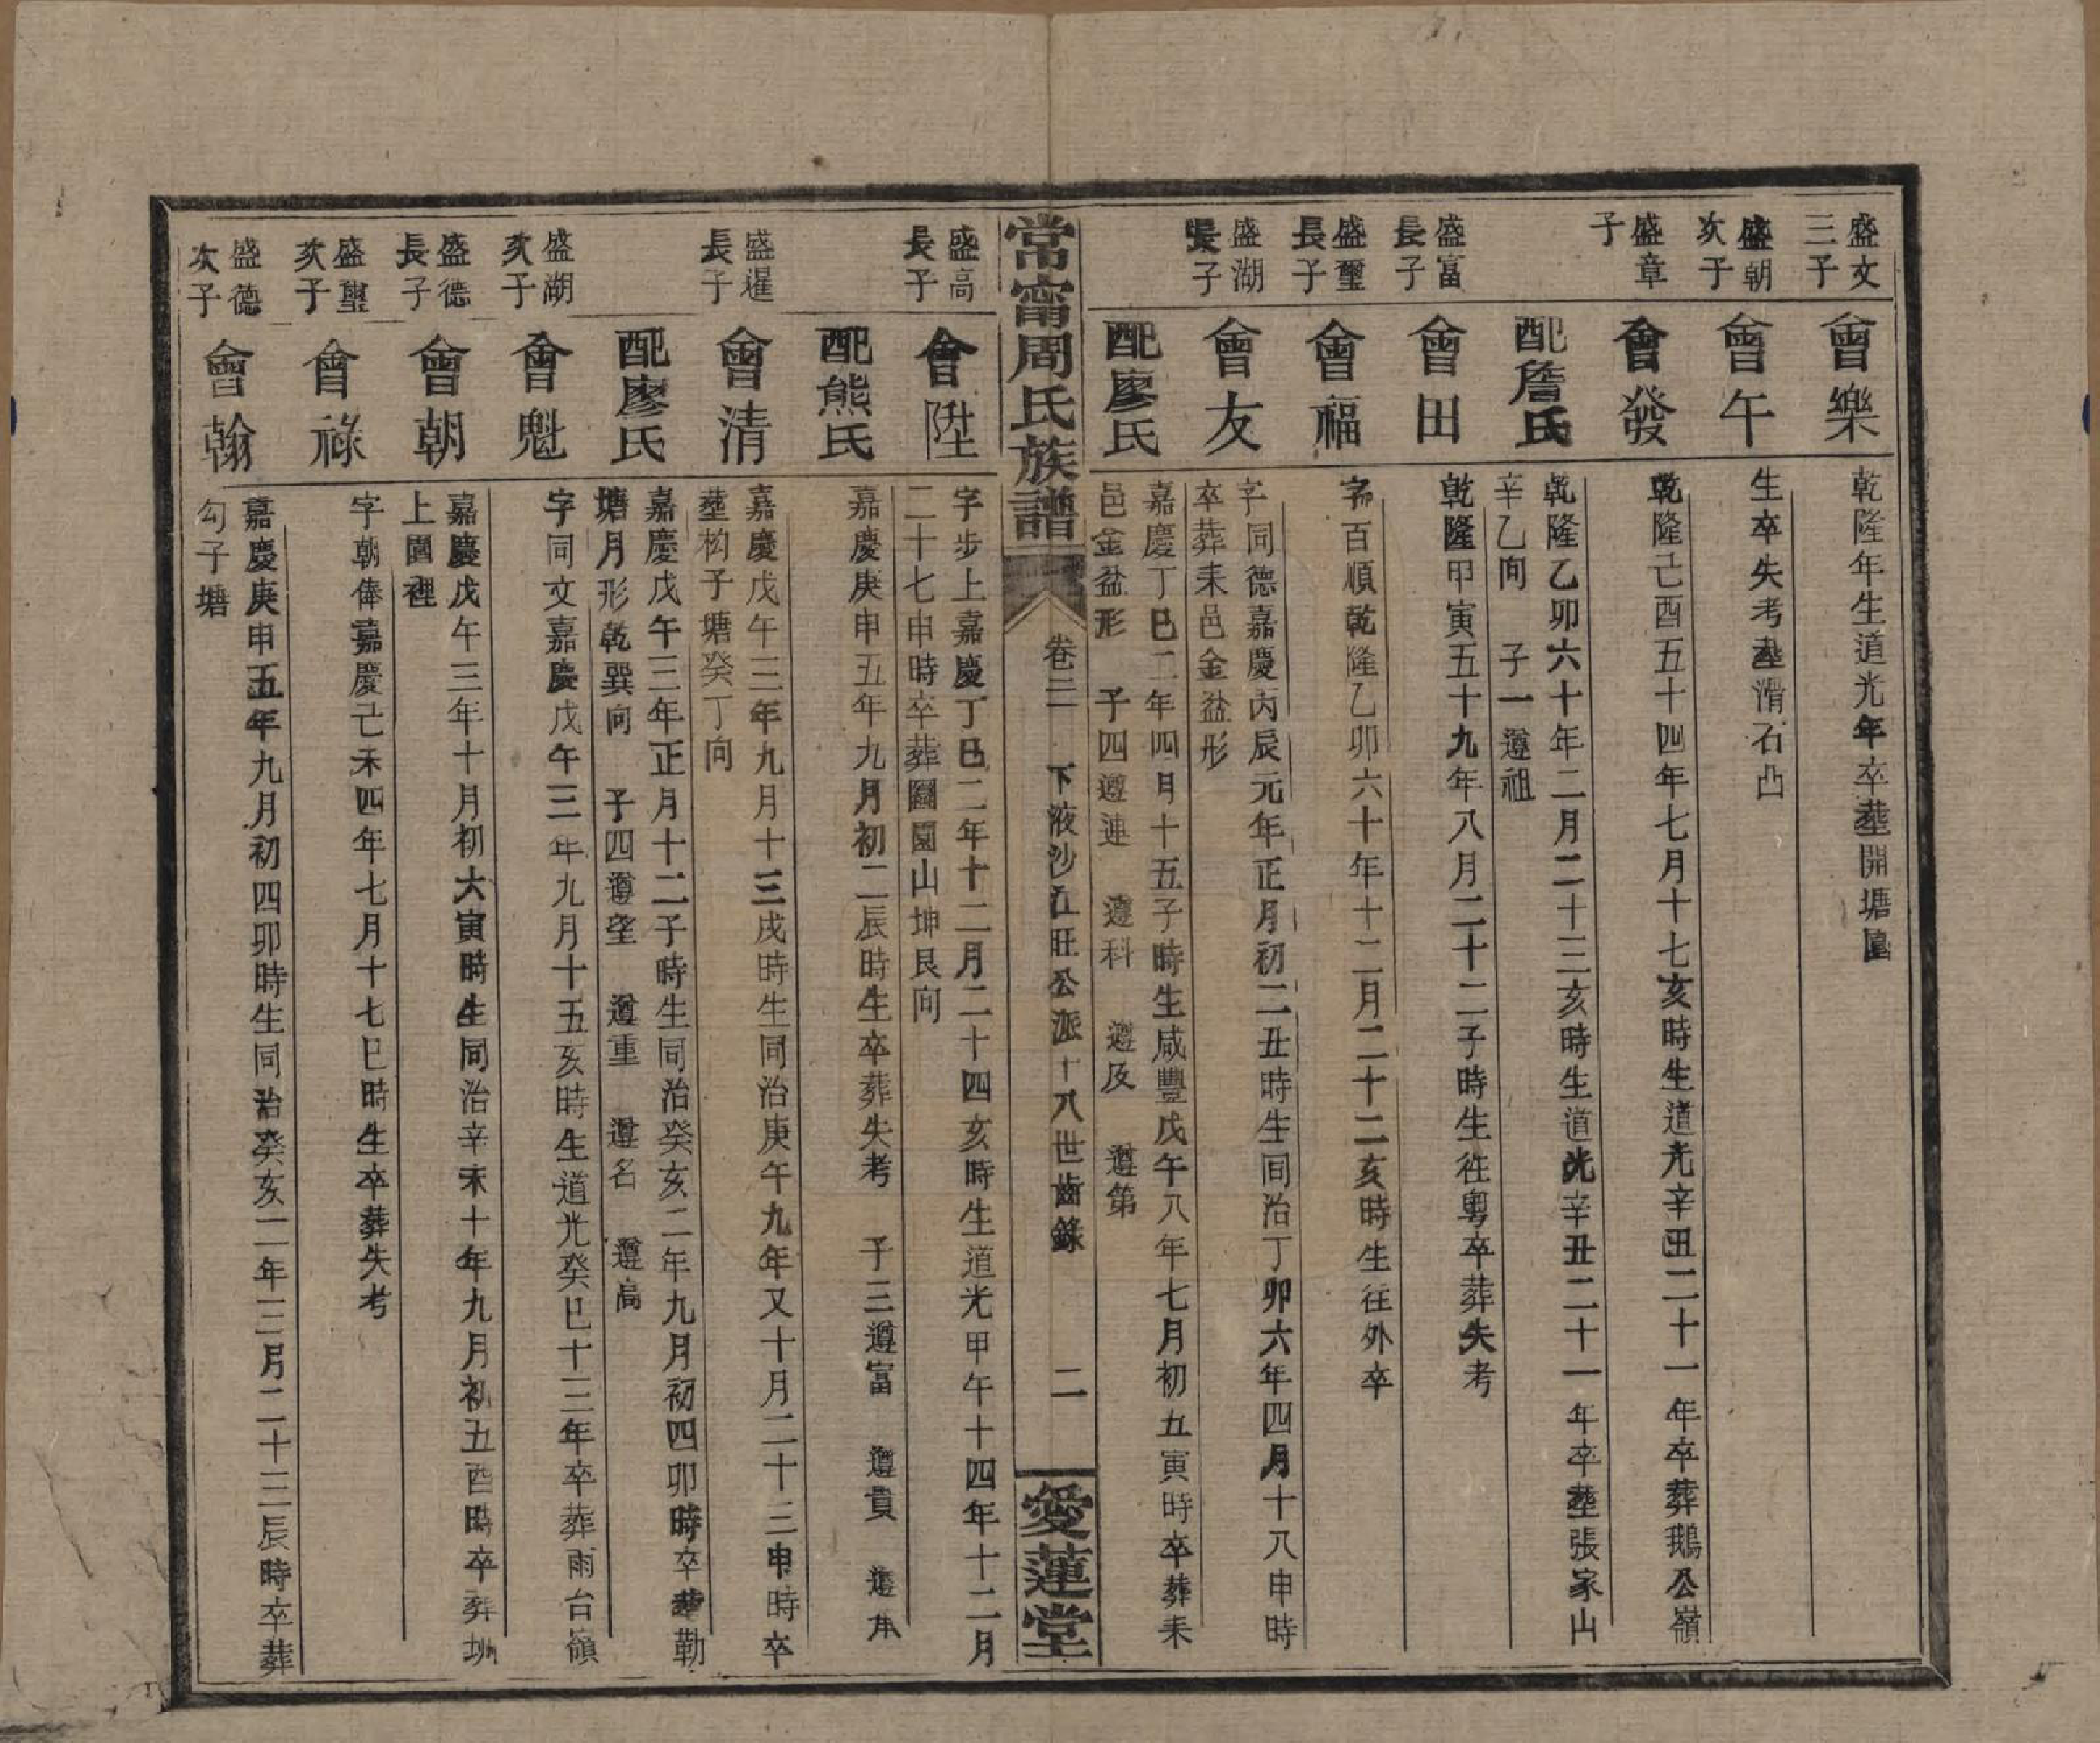 盛文
三子
會樂
乾隆年生道光年卒塟開塘
盛朝
次子
會午
生卒失考塟滑石凸
盛章
子
會發
乾隆己酉五十四年七月十七亥時生道光辛丑二十一年卒葬鵝公嶺
配詹氏
乾隆乙卯六十年二月二十三亥時生道光辛丑二十一年卒塟張家山
辛乙向 子一遵祖
盛富
長子
會田
乾隆甲寅五十九年八月二十二子時生往粵卒葬失考
盛璽
長子
會福
字百順乾隆乙卯六十年十二月二十二亥時生往外卒
盛湖
長子
會友
字同德嘉慶丙辰元年正月初二丑時生同治丁卯六年四月十八申時
卒葬耒邑金盆形
配廖氏
嘉慶丁巳二年四月十五子時生咸豐戊午八年七月初五寅時卒葬耒
邑金盆形 子四遵連 遵科 遵及 遵第
常甯周氏族譜
卷三 下液沙江旺公派十八世齒錄 二
愛蓮堂
盛高
長子
會陞
字步上嘉慶丁巳二年十二月二十四亥時生道光甲午十四年十二月
二十七申時卒葬園山坤艮向
配熊氏
嘉慶庚申五年九月初二辰時生卒葬失考 子三遵富 遵貴 遵
盛暹
長子
會清
嘉慶戊午三年九月十三戌時生同治庚午九年又十月二十三申時卒
塟枃子塘癸丁向
配廖氏
嘉慶戊午三年正月十二子時生同治癸亥二年九月初四卯時卒葬勒
塘月形乾巽向 子四遵望 遵重 遵名 遵高
盛湖
次子
會魁
字同文嘉慶戊午三年九月十五亥時生道光癸巳十三年卒葬雨台嶺
盛德
長子
會朝
嘉慶戊午三年十月初六寅時生同治辛未十年九月初五酉時卒葬坳
上園裡
盛璽
次子
會祿
字朝俸嘉慶己未四年七月十七巳時生卒葬失考
盛德
次子
會翰
嘉慶庚申五年九月初四卯時生同治癸亥二年三月二十三辰時卒葬
勾子塘